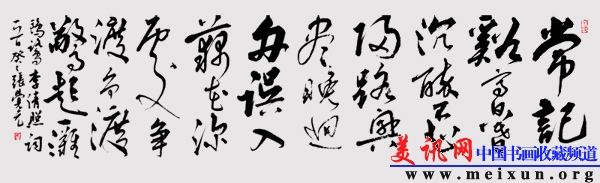 常記
谿亭日暮
沉醉不知
歸路興
盡晚迴
舟誤入
藕花深
處争
渡争渡
驚起一灘
鷗鷺 李清照詞
癸巳張
美讯网 中国书画收藏频道
www.meixun.org